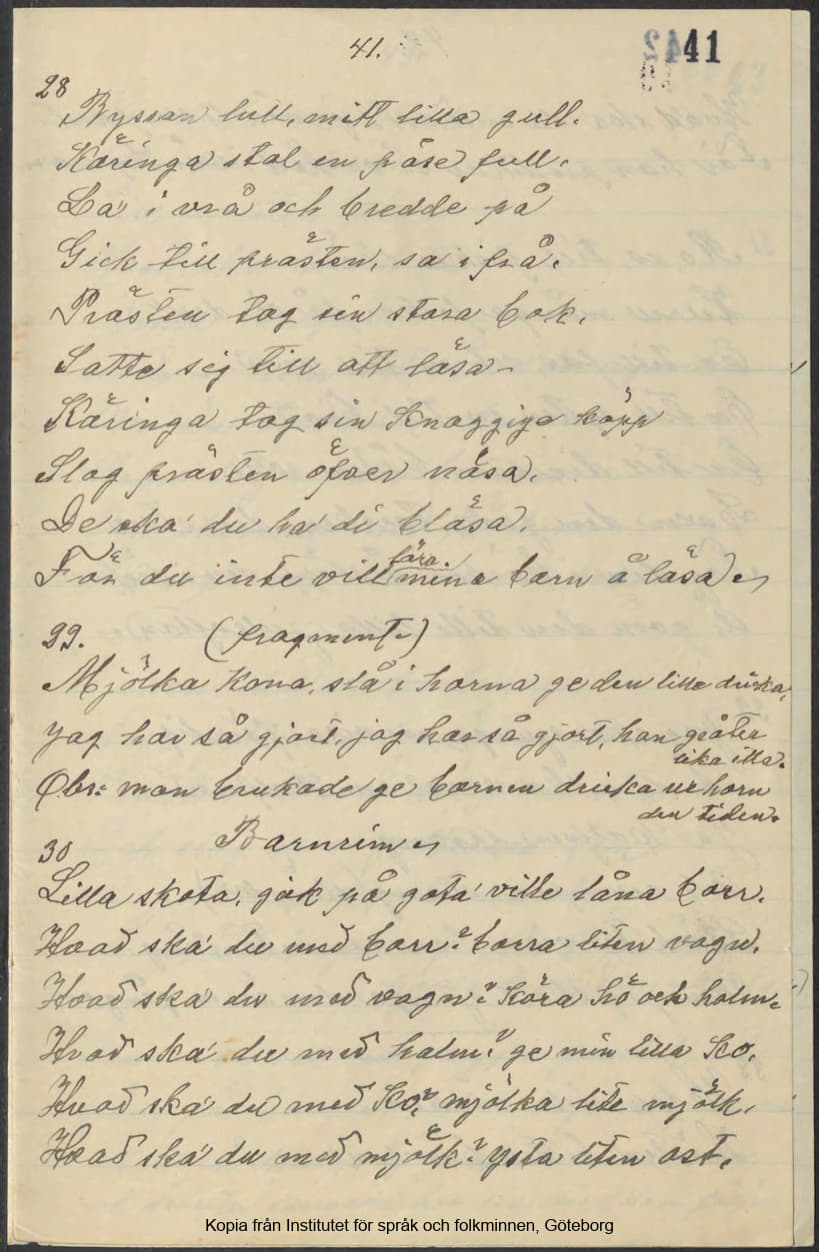 41.
41
28
Byssan lull, mitt lilla gull.
Käringa stal en påse full.
La' i vrå och bredde på
Gick till prästen, sa i frå.
Prästen tog sin stora bok,
Satte sig till att läsa-
Käringa tog sin knaggiga käpp
Slog prästen öfver näsa.
De ska' du ha' di bläsa.
För du inte vill lära mina barn å läsa.
29. (fragment.)
Mjölka kona, slå i horna ge den lille dricka,
Jag har så gjort, jag har så gjort, han gråter
lika illa.
Obs: man brukade ge barnen dricka ur horn
den tiden.
Barnrim.
30
Lilla skota, gick på gota' ville låna borr.
Hvad ska' du med borr? borra liten vagn.
Hvad ska' du med vagn? Köra hö och halm.
Hvad ska' du med halm? ge min lilla ko.
Hvad ska' du med ko? mjölka lite mjölk.
Hvad ska' du med mjölk? ysta liten ost.
Kopia från Institutet för språk och folkminnen, Göteborg